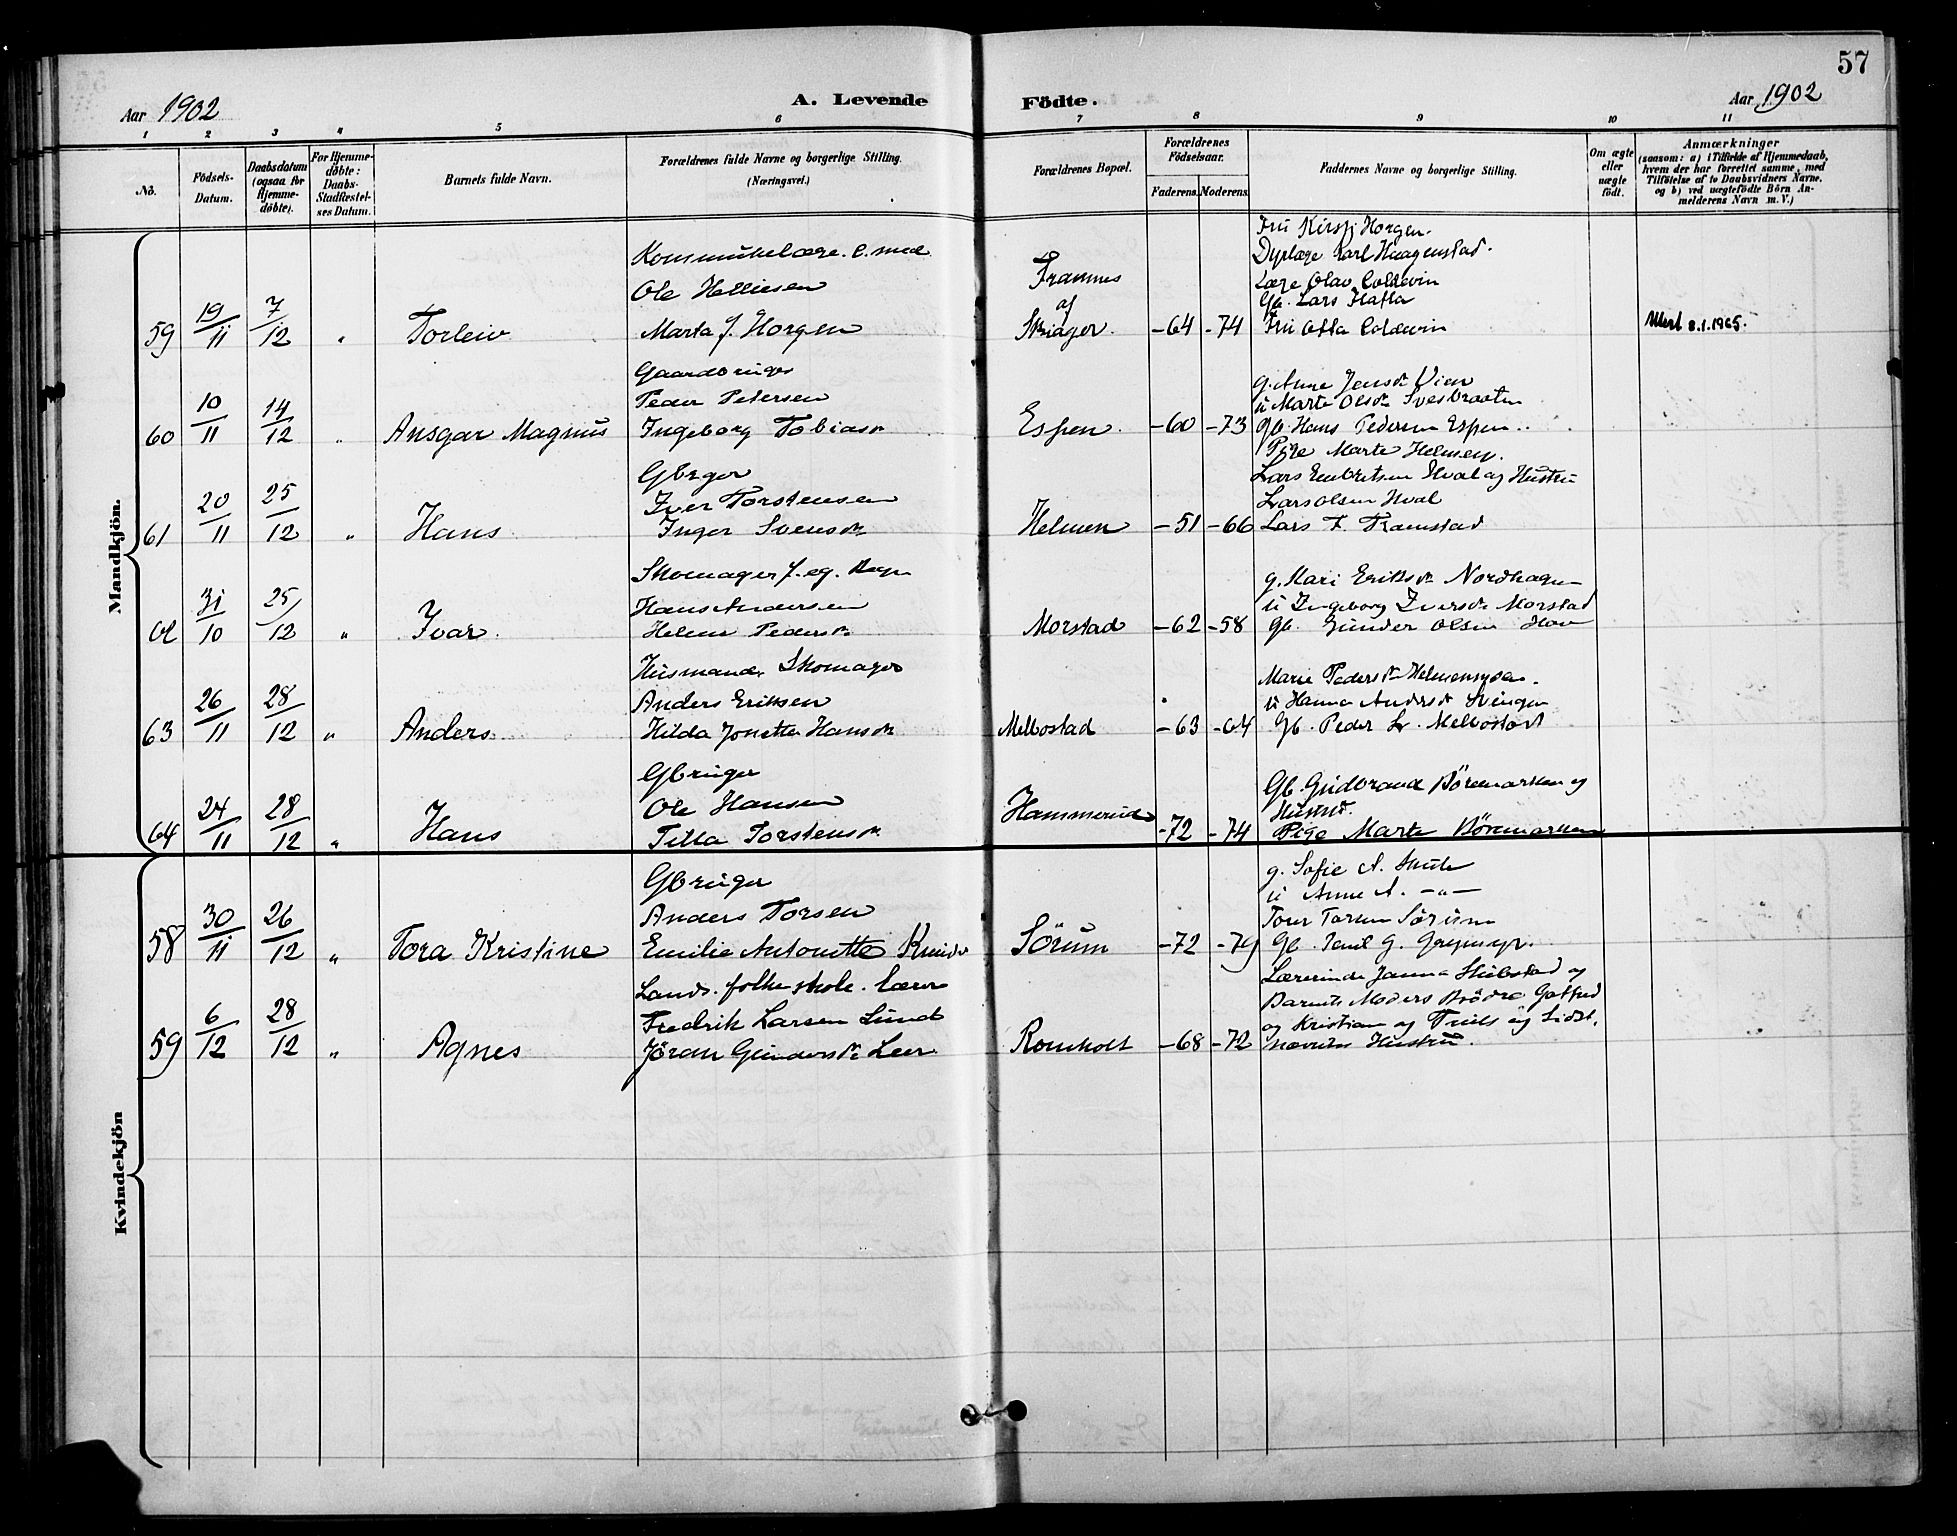 57
Aar 1902
A. Levende Födte.
Aar 1902
1 2 3 4 5 6 7 8 9 10 11
No.
Födsels-Datum.
Daabsdatum (ogsaa for Hjemme-döbte).
For Hjemme-döbte: Daabs-Stadfæstel-ses Datum.
Barnets fulde Navn.
Forældrenes fulde Navne og borgerlige Stilling. (Næringsvei.)
Forældrenes Bopæl.
Forældrenes Födselsaar.
Faderens. Moderens.
Faddernes Navne og borgerlige Stilling.
Om ægte eller uægte födt.
Anmærkninger
(saasom: a) i Tilfælde af Hjemmedaab,
hvem der har forrettet samme, med
Tilföielse af to Daabsvidners Navne,
og b) ved uægtefödte Börn An-
melderens Navn m. V.)
Mandkjön.
Kommunelæge. C. med
Ole Helliesen
59 19/11 7/12 " Torleiv Marta J. Horgen
Framnes
af
Skiager. -64 -74
Fru Kirsti Horgen.
Dyrlæge Karl Haagenstad.
Læge Olav Coldevin
Gb. Lars Hafla
Fru Otta Coldevin
8.1.1965.
Gaardbruger
Peder Petersen
60 10/11 14/12 " Ansgar Magnus Ingeborg Tobiasd.
Espen. -60 -73
g. Anne Jensd. Vien
u Marte Olsd.
gb. Hans Pedersen Espen.
Pige Marte Helmen.
Gbrger
Iver Torstensen
61 20/11 25/12 " Hans Inger Svensd.
Helmen -51 -66
Lars Embretsen Hval og Hustru
Lars Olsen Hval
Lars T. Framstad
Skomager f. eg. Regn
Hans Andersen
62 31/10 25/12 " Ivar. Helene Pedersd.
Morstad -62 -58
g. Kari Eriksd. Nordhagen
u Ingeborg Iversd. Morstad
gb. Gunder Olsen Hov
Husmand, Skomager
Anders Eriksen
63 26/11 28/12 " Anders. Hilda Jonette Hansd.
Melbostad -63 -64
Marie Pedersd. Helmensysen.
u Hanna Andersd. Svingen
Gb. Peder L. Melbostad
Gbruger
Ole Hansen
64 24/11 28/12 " Hans Tilla Torstensd.
Hammerud -72 -74
Gb. Gudbrand Börkmarken og
Hustru.
Pige Marte
Kvindekjön
Gbruger
Anders Torsen
58 30/11 26/12 " Tora Kristine Emilie Antonette Knudsd
Sörum -72 -79
g. Sofie A. Skute
u Anne A. -"-
Tover Torsen Sörum
Gb. Paul G.
Lands. folkeskole. lærer
Fredrik Larsen Lund
59 6/12 28/12 " Agnes Jöran Gundersd. Leer
Romholt -68 -72
Lærerinde Janna Skiebstad og
Barnets Moders Brödre Gotfred
og Kristian og Truls og Sidst.
nævntes Hustru.